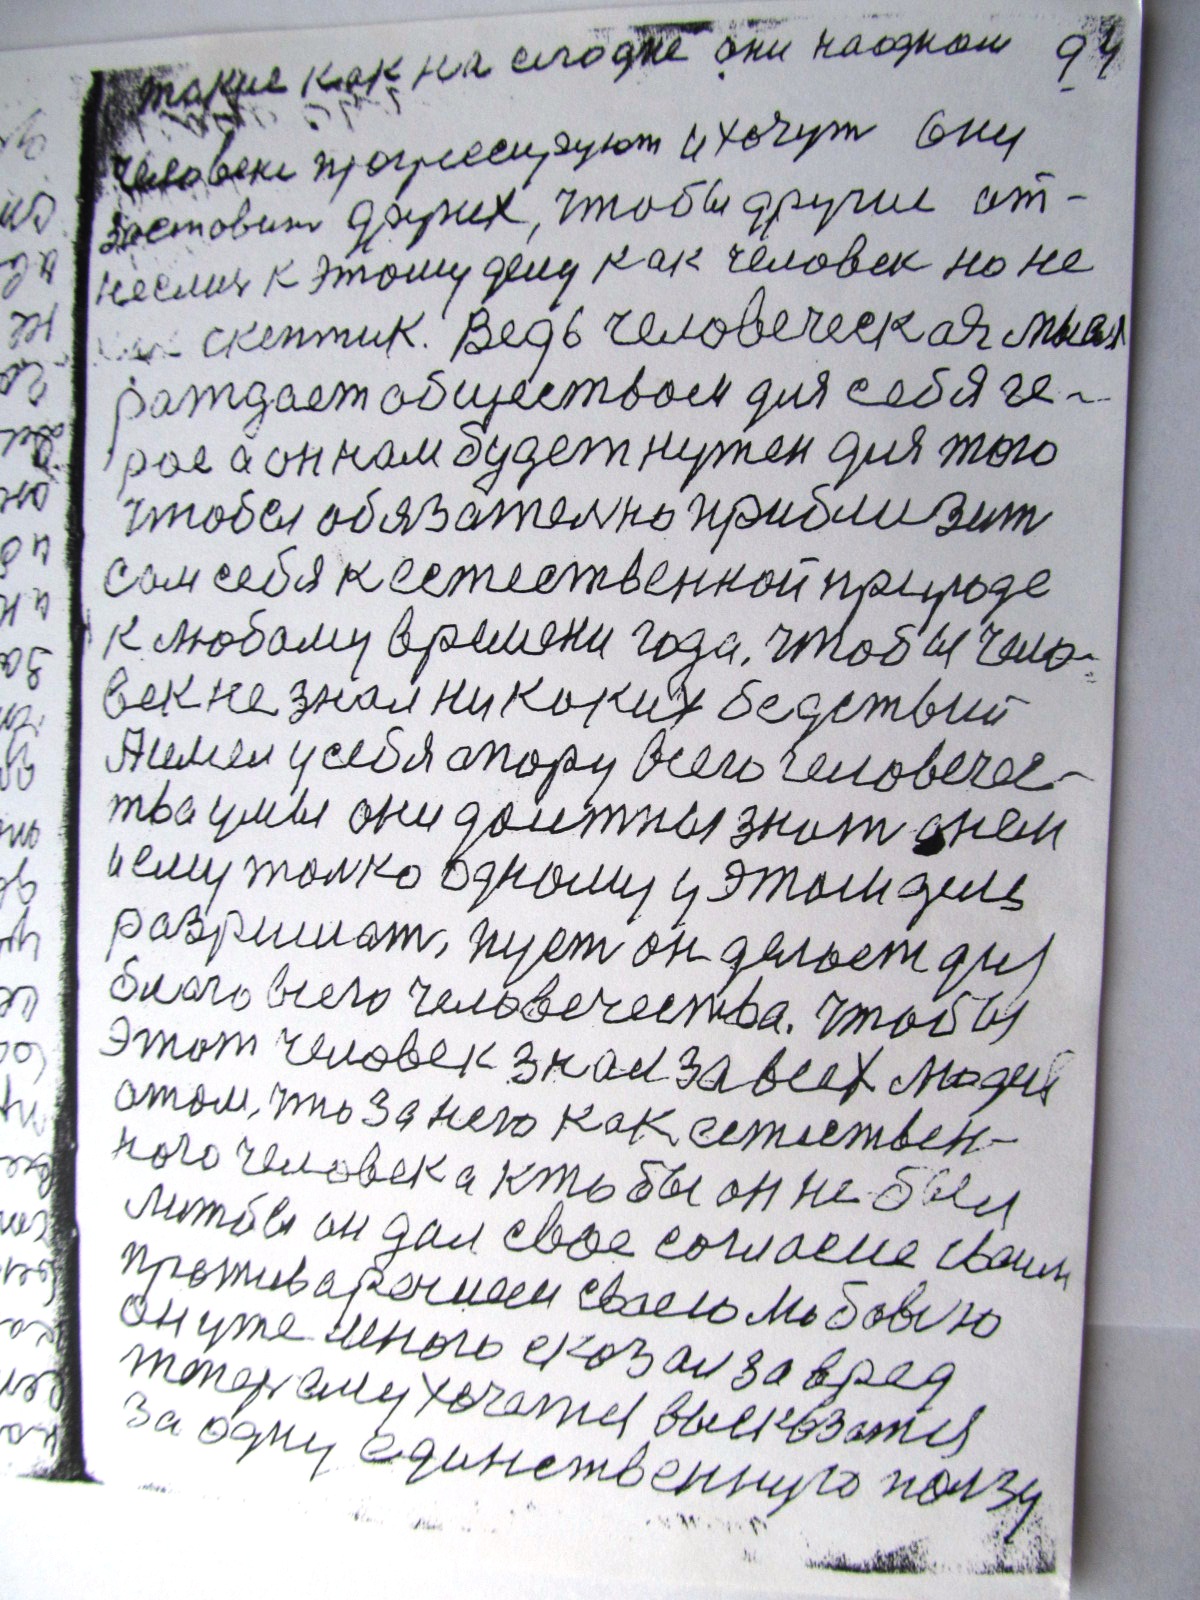 94
такие как на сегодне они наодном
человеке прогресируют и хочут они
заставит других, чтобы другие от-
неслис к этому делу как человек но не
скептик. Ведь человеческая мысл
раждает обществом для себя ге-
рое а он нам будет нужен для того
чтобы обязателно приблизит
сам себя к естественной природе
к любому времени года, чтобы чело-
век не знал ни каких бедствий
Аимел у себя опору всего человечес-
тва умы они должны знат онем
иему толко одному у этом деле
разришат, пуст он делает для
благо всего человечества. Чтобы
этот человек знал за всех людей
отом, что за него как естествен-
ного человека кто бы он не был
литбы он дал свое согласие своим
противаречием своею любовью
он уже много сказал за вред
теперь ему хочется высказатся
за одну единственную ползу